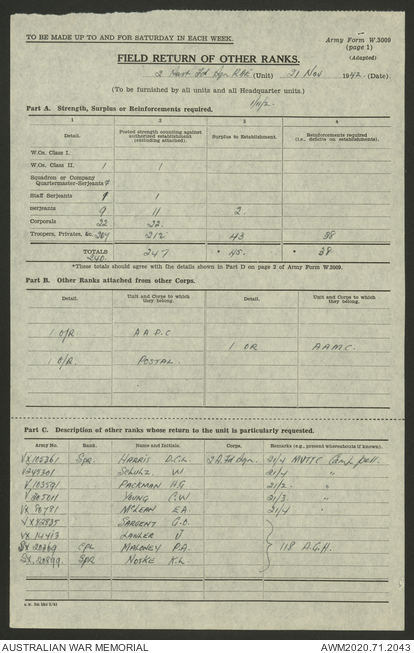 TO BE MADE UP TO AND FOR SATURDAY IN EACH WEEK.
Army Form W.3009
(page 1)
(Adapted)
FIELD RETURN OF OTHER RANKS.
2 Fd (Unit) 21 Nov 1942 (Date).
(To be furnished by all units and all Headquarter units.)
Part A. Strength, Surplus or Reinforcements required.
1 2 3 4
Detail. Posted strength counting against authorized establishment (excluding attached). Surplus to Establishment. Reinforcements required (i.e., deficits on establishments).
W.Os. Class I.
W.Os. Class II. 1 1
Squadron or Company
Quartermaster-Serjeants
Staff Serjeants 1
Serjeants 9 11 2
Corporals 22 22
Troopers, Privates, &c. 207 212 43 38
TOTALS 240 247 * 45 * 38
*These totals should agree with the details shown in Part D on page 2 of Army Form W.3009.
Part B. Other Ranks attached from other Corps.
Detail. Unit and Corps to which they belong. Detail. Unit and Corps to which they belong.
1 O/R A A P.C
1 OR A A M C
1 O/R POSTAL
Part C. Description of other ranks whose return to the unit is particularly requested.
Army No. Rank. Name and Initials. Corps. Remarks (e.g., present whereabouts if known).
VX105361 Spr HARRIS D.C.L. 21/4 Camp
V245301 SCHULZ W. 21/4 "
V103591 PACKMAN H.G 21/2 "
V305011 YOUNG C.W 21/3 "
VX80781 McLEAN E.A. 21/4 "
VX82835 SARGENT G.O.
VX14413 LAWLER J
SX20269 CPL MALONEY P.A. 118 A.G.H.
SX20899 SPR NOSKE K.L.
AUSTRALIAN WAR MEMORIAL
AWM2020.71.2043